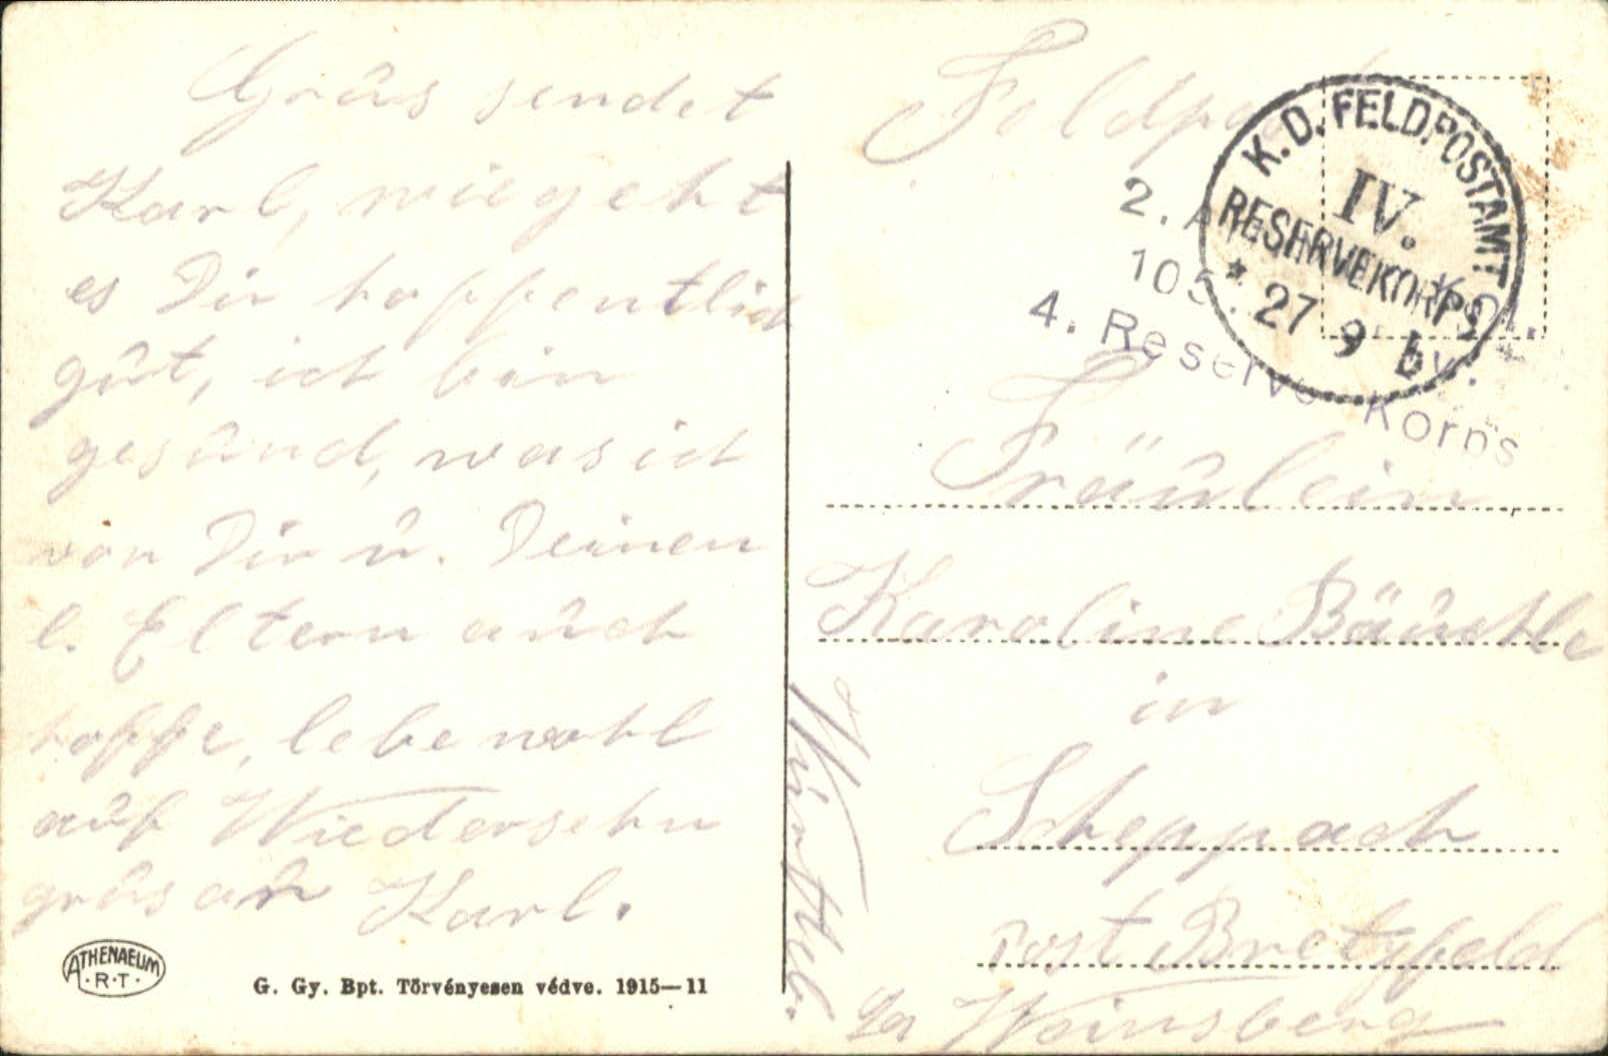 Grûs sendet
Karl, wie geht
es Dir hoffentlich
gût, ich bin
gesûnd, was ich
von Dir û. Deinen
l. Eltern aûch
hoffe, lebe wohl
auf Wiedersehn
grûs
Karl.
ATHENAEUM
·R·T·
G. Gy. Bpt. Törvényesen védve. 1915—11
Feldpost
K. D. FELDPOSTAMT
IV.
RESERVEKORPS
* 27 9
2.
105.
4. Reserve Korps
Fräûlein
Karoline Bäûchle
in
Scheppach
Post Bretzfeld
Weinsberg
Württbg.